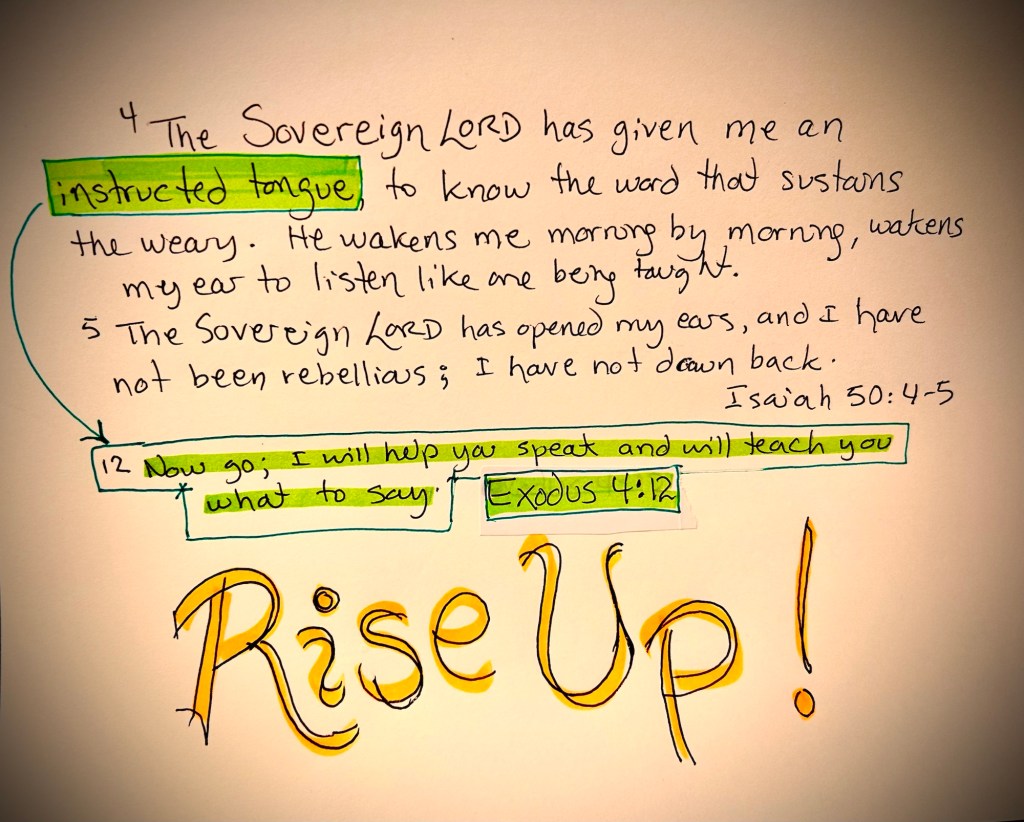 4 The Sovereign LORD has given me an
instructed tongue, to know the word that sustains
the weary. He wakens me morning by morning, wakens
my ear to listen like one being taught.
5 The Sovereign LORD has opened my ears, and I have
not been rebellious; I have not drawn back.
Isaiah 50:4-5
12 Now go; I will help you speak and will teach you
what to say.
Exodus 4:12
Rise Up!